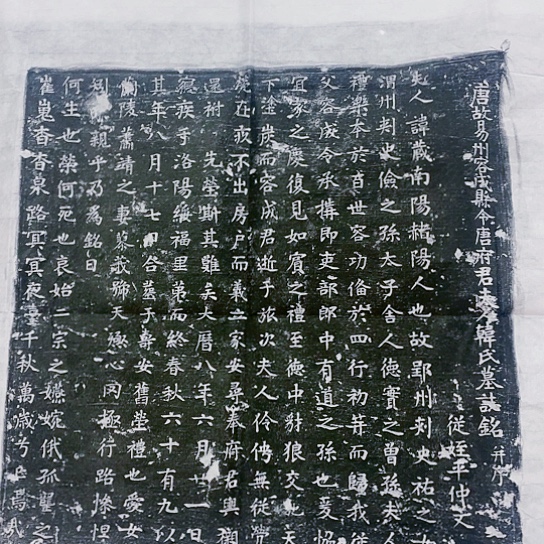 唐故易州容城縣令唐府君夫人韓氏墓誌銘并序
從姪平仲文
夫人諱藏南陽緒陽人也故郢州刾史祐之女
渭州刾史儉之孫太子舍人德賓之曾孫夫人
禮樂本於百世容功備於四行初笄而歸我從
父容成令承搆即吏部郎中有道之孫也爰恊
宜家之慶復見如賓之禮至德中豺狼交
下塗炭而容成君逝于旅次夫人伶俜無從
在疚不出房戶而義立家安尋奉府君輿櫬
還祔先塋斯其難矣大曆八年六月廿一日
寢疾于洛陽綏福里第而終春秋六十有九以
其年八月十七日合葬于壽安舊塋禮也愛女
蘭陵蕭靖之妻慕義號天心罔極行路慘悍
親乎乃為銘曰
何生也榮何死也哀始二宗之嬿婉俄孤
崔嵬杳杳泉路冥冥夜臺千秋萬歲兮